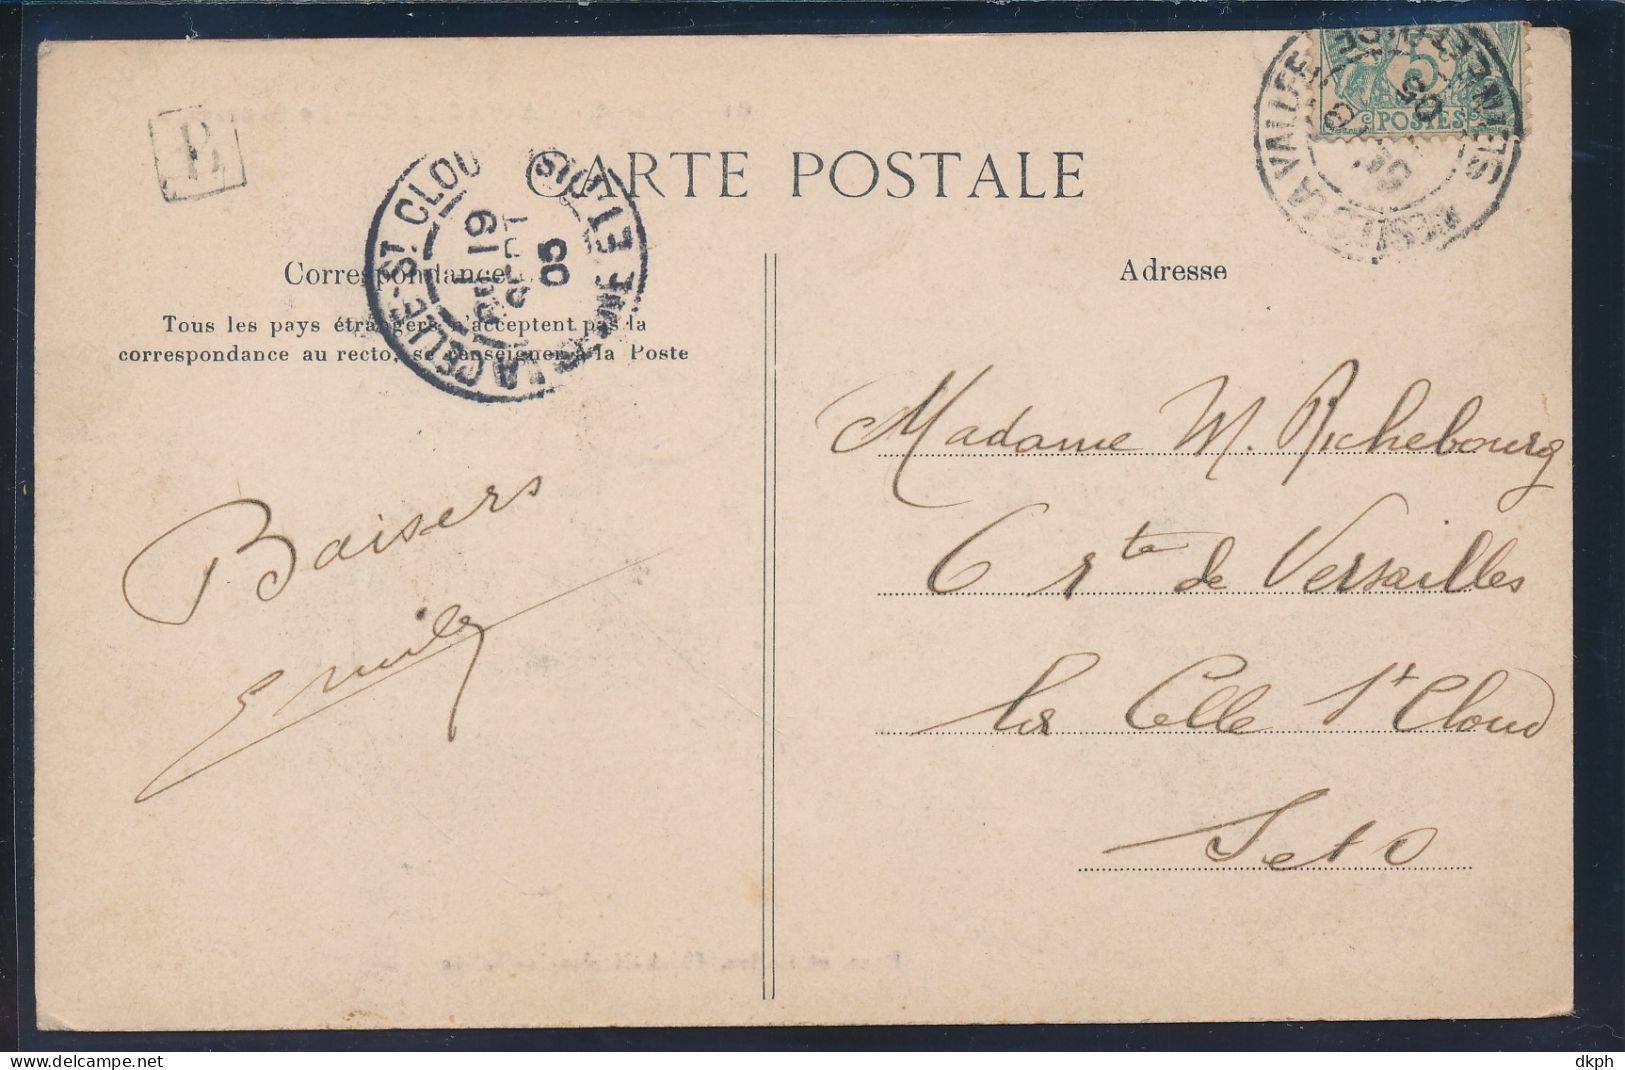 B
CARTE POSTALE
5
POSTES
05
LA CELLE-ST CLOUD
SEINE ET OISE
19
SEPT
05
Correspondance
Adresse
Tous les pays étrangers n'acceptent pas la
correspondance au recto, se renseigner à la Poste
Baisers
Emile
Madame M. Richebourg
6 rte de Versailles
La Celle St Cloud
S et O
dkph